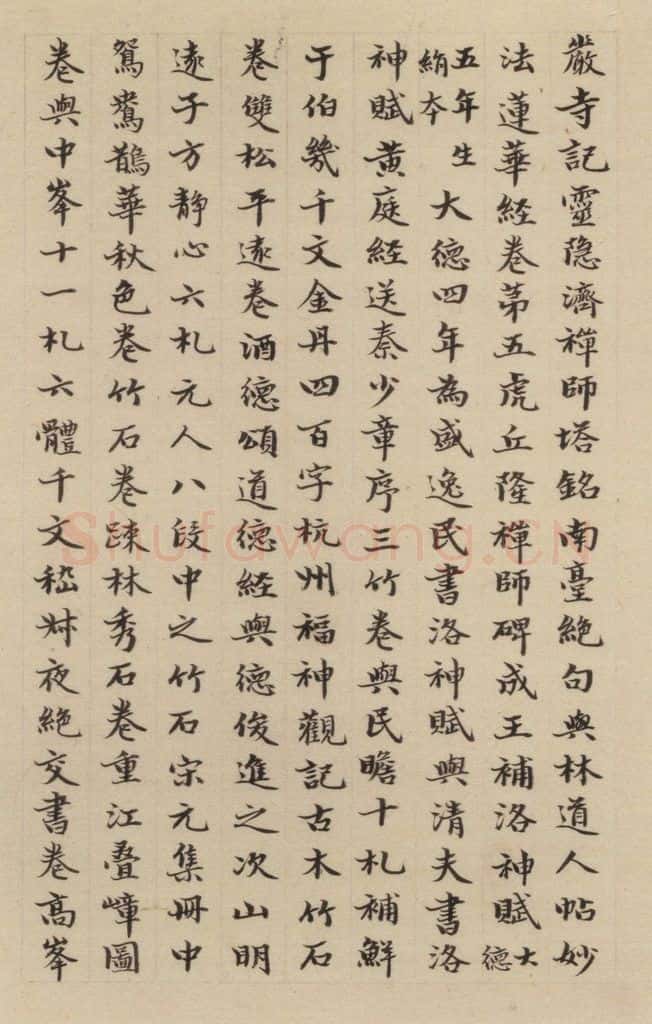 嚴寺記靈隐濟禪師塔銘南臺絕句與林道人帖妙
法蓮華経卷苐五虎丘隆禪師碑成王補洛神賦大德
五年生絹本大德四年為盛逸民書洛神賦與清夫書洛
神賦黄庭経送秦少章序三竹卷與民瞻十札補鮮
于伯幾千文金丹四百字杭州福神觀記古木竹石
卷雙松平遠卷酒德頌道德経與德俊進之次山明
遠子方静心六札元人八段中之竹石宋元集冊中
鴛鴦鵲華秋色卷竹石卷踈林秀石卷重江疊嶂圖
卷與中峯十一札六體千文嵇叔夜絕交書卷高峯
Shufawang.CN